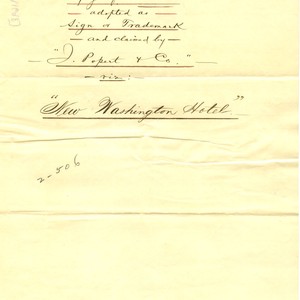 — adopted as —
Sign & Trademark
— and claimed by —
— "J. Popert & Co." —
— viz: —
"New Washington Hotel"
2-506